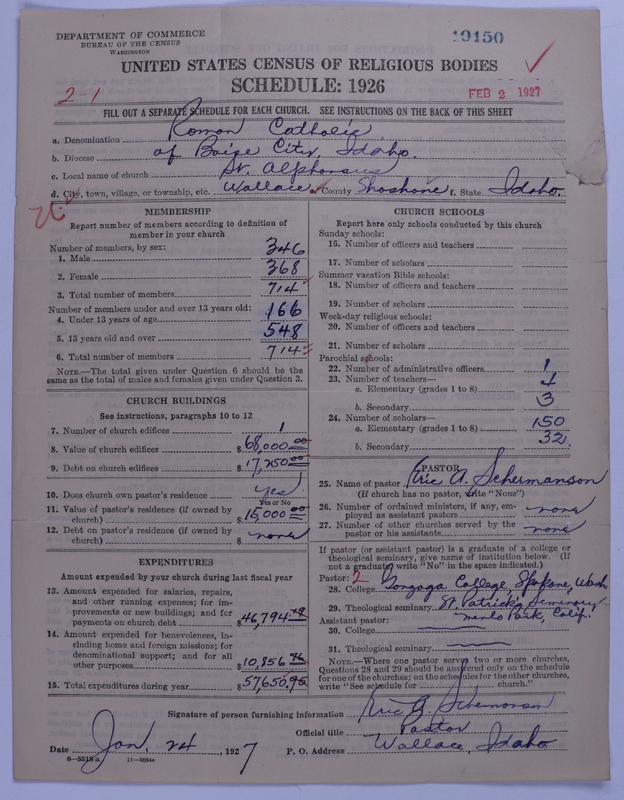 DEPARTMENT OF COMMERCE
BUREAU OF THE CENSUS
WASHINGTON
19150
UNITED STATES CENSUS OF RELIGIOUS BODIES
SCHEDULE: 1926
2-1
FEB 2 1927
FILL OUT A SEPARATE SCHEDULE FOR EACH CHURCH. SEE INSTRUCTIONS ON THE BACK OF THIS SHEET
a. Denomination Roman Catholic
b. Diocese of Boise City, Idaho.
c. Local name of church St. Alphonsus
d. City, town, village, or township, etc. Wallace e. County Shoshone f. State Idaho.
MEMBERSHIP
Report number of members according to definition of
member in your church
Number of members, by sex:
1. Male 346
2. Female 368
3. Total number of members 714
Number of members under and over 13 years old:
4. Under 13 years of age 166
5. 13 years old and over 548
6. Total number of members 714
NOTE.—The total given under Question 6 should be
same as the total of males and females given under Question 3.
CHURCH BUILDINGS
See instructions, paragraphs 10 to 12
7. Number of church edifices 1
8. Value of church edifices $68,000.00
9. Debt on church edifices $17,250.00
10. Does church own pastor's residence yes
Yes or No
11. Value of pastor's residence (if owned by
church) $15,000.00
12. Debt on pastor's residence (if owned by
church) $ none
EXPENDITURES
Amount expended by your church during last fiscal year
13. Amount expended for salaries, repairs,
and other running expenses; for im-
provements or new buildings; and for
payments on church debt $46,794
14. Amount expended for benevolences, in-
cluding home and foreign missions; for
denominational support; and for all
other purposes $10,856
15. Total expenditures during year $57,650.95
CHURCH SCHOOLS
Report here only schools conducted by this church
Sunday schools:
16. Number of officers and teachers
17. Number of scholars
Summer vacation Bible schools:
18. Number of officers and teachers
19. Number of scholars
Week-day religious schools:
20. Number of officers and teachers
21. Number of scholars
Parochial schools:
22. Number of administrative officers 1
23. Number of teachers—
a. Elementary (grades 1 to 8) 4
b. Secondary 3
24. Number of scholars—
a. Elementary (grades 1 to 8) 150
b. Secondary 32
PASTOR
25. Name of pastor Eric A. Schermanson
(If church has no pastor, write "None")
26. Number of ordained ministers, if any, em-
ployed as assistant pastors none
27. Number of other churches served by the
pastor or his assistants none
If pastor (or assistant pastor) is a graduate of a college or
theological seminary, give name of institution below. (If
not a graduate write "No" in the space indicated.)
Pastor: 2
28. College Gonzaga College, Spokane, Wash
29. Theological seminary St. Patricks Seminary
Menlo Park, Calif.
Assistant pastor:
30. College
31. Theological seminary
NOTE.—Where one pastor served two or more churches,
Questions 28 and 29 should be answered only on the schedule
for one of the churches; on the schedules for the other churches,
write "See schedule for church."
Signature of person furnishing information Eric A. Schermanson
Official title Pastor
Date Jan. 24, 1927 P. O. Address Wallace, Idaho
8—5518a 11—9254